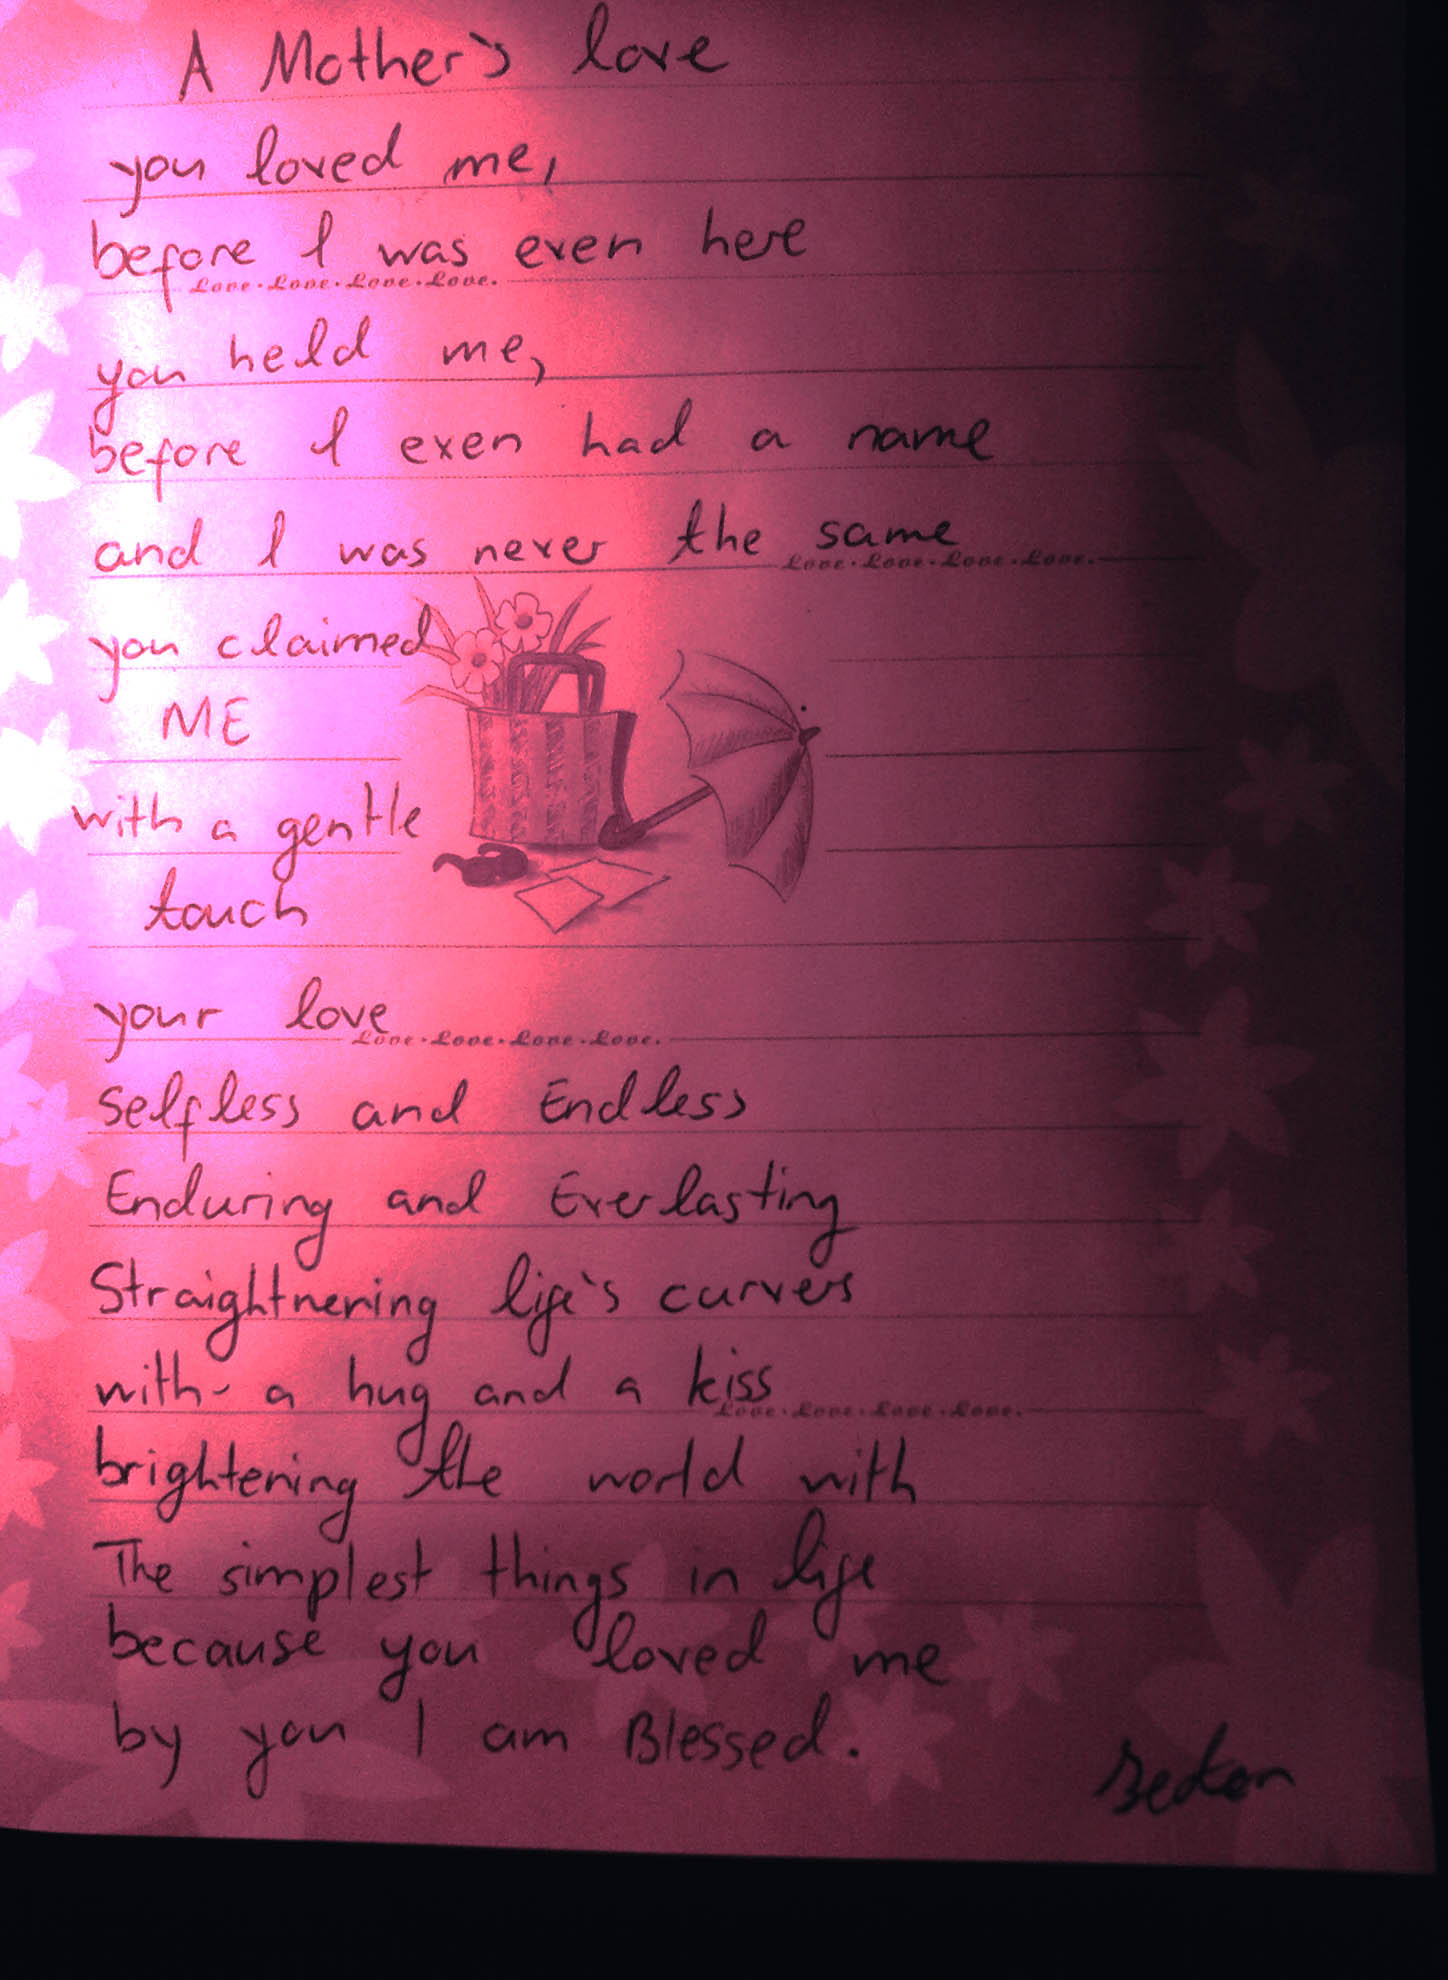 A Mother's love
you loved me,
before I was even here
Love·Love·Love·Love.
you held me,
before I even had a name
and I was never the same
Love·Love·Love·Love.
you claimed
ME
with a gentle
touch
your love
Love·Love·Love·Love.
Selfless and Endless
Enduring and Everlasting
Straightnering life's curvers
with a hug and a kiss
Love·Love·Love·Love.
brightening the world with
The simplest things in life
because you loved me
by you I am Blessed.